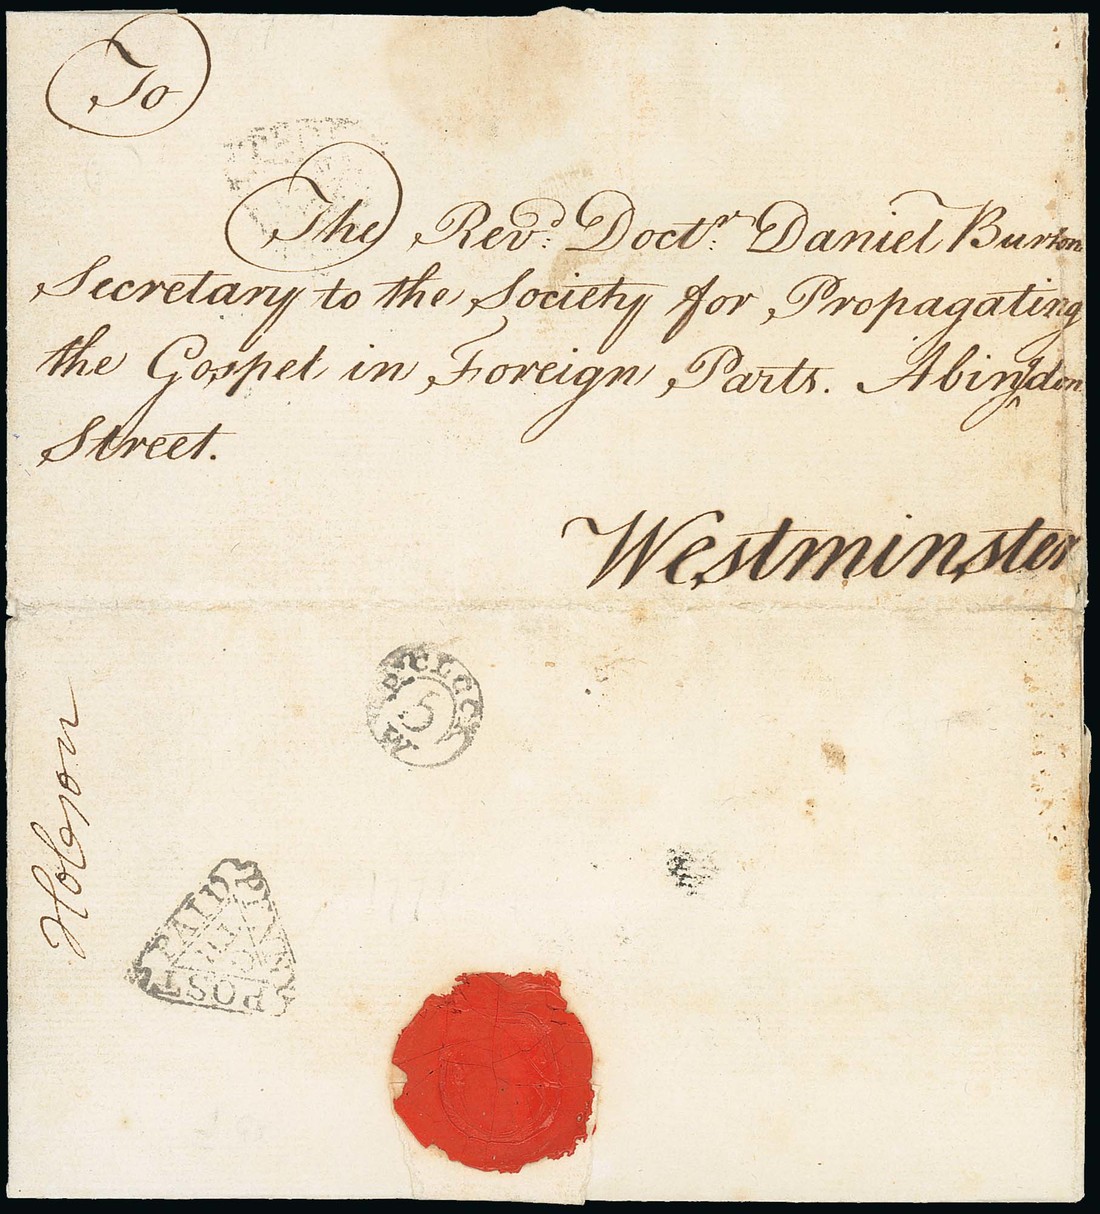 To
The Revd. Doctr. Daniel Burton
Secretary to the Society for Propagating
the Gospel in Foreign Parts. Abingdon
Street.
Westminster
5
CLOCK
Hobson
PENY
POST
PAID